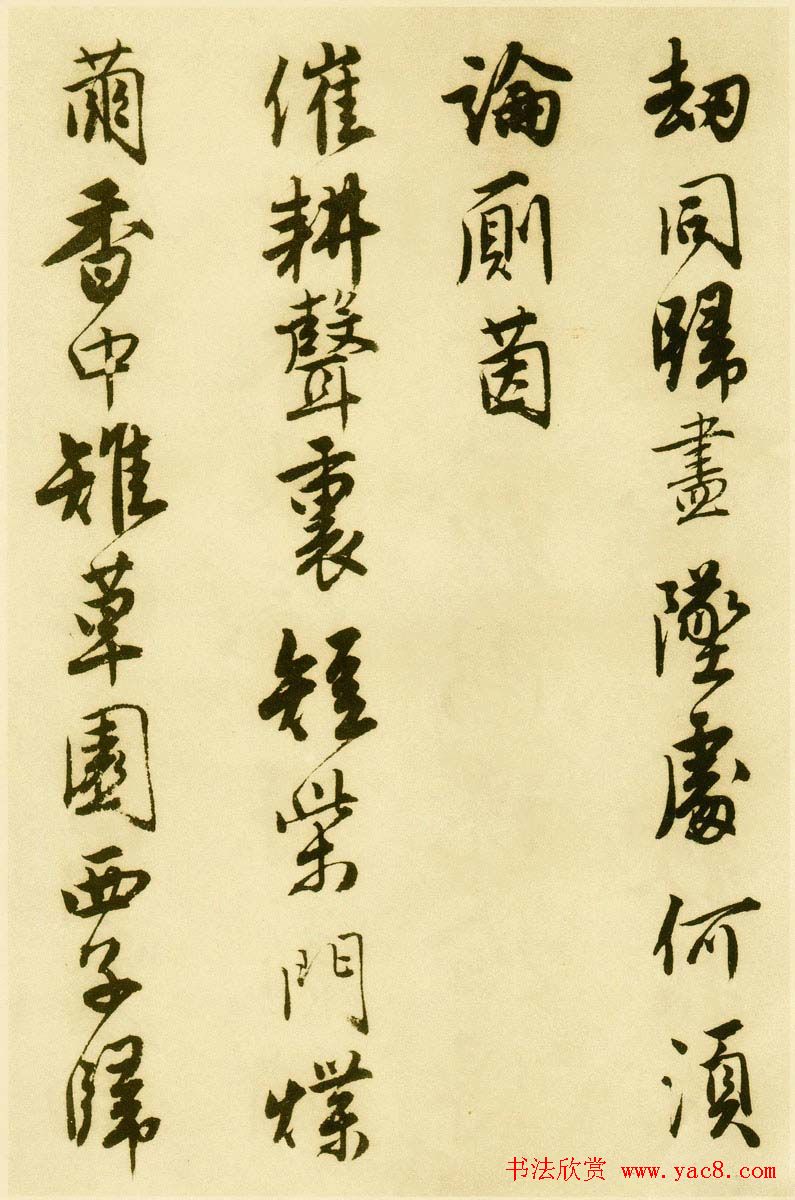 劫同歸盡墜處何須
論廁茵
催耕聲裏短柴門煠
繭香中雉草園西子歸
书法欣赏 www.yac8.com